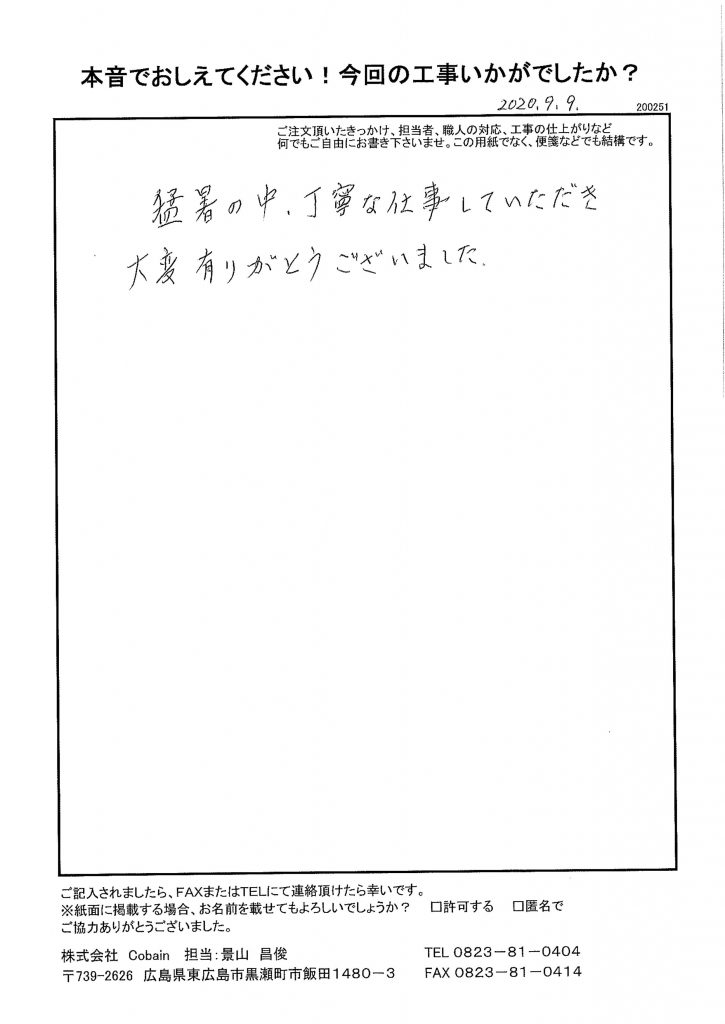 本音でおしえてください！今回の工事いかがでしたか？
2020.9.9.
200251
ご注文頂いたきっかけ、担当者、職人の対応、工事の仕上がりなど
何でもご自由にお書き下さいませ。この用紙でなく、便箋などでも結構です。
猛暑の中、丁寧な仕事していただき
大変有りがとうございました.
ご記入されましたら、FAXまたはTELにて連絡頂けたら幸いです。
※紙面に掲載する場合、お名前を載せてもよろしいでしょうか？　□許可する　□匿名で
ご協力ありがとうございました。
株式会社　Cobain　担当：景山　昌俊　TEL 0823－81－0404
〒739-2626　広島県東広島市黒瀬町市飯田1480－3　FAX 0823－81－0414